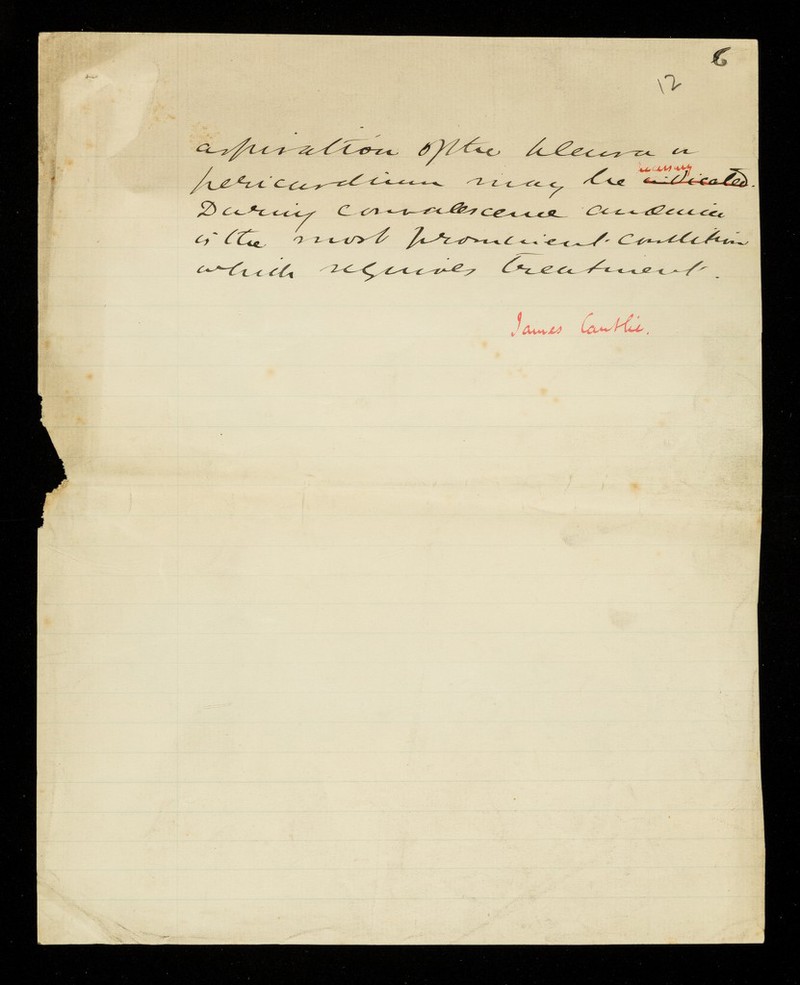 6
12
aspiration of the pleura or
necessary
pericardium may be indicated.
During convalescence anaemia
is the most prominent condition
which requires treatment.
James Cantlie.